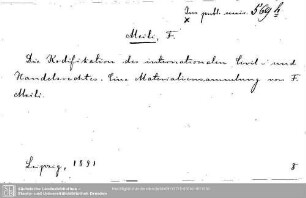 Jus publ. univ. 569 h
x
Meili, F.
Die Kodifikation des internationalen Civil- und
Handelsrechtes. Eine Materialiensammlung von F.
Meili.
Leipzig, 1891
8
Sächsische Landesbibliothek -
Staats- und Universitätsbibliothek Dresden